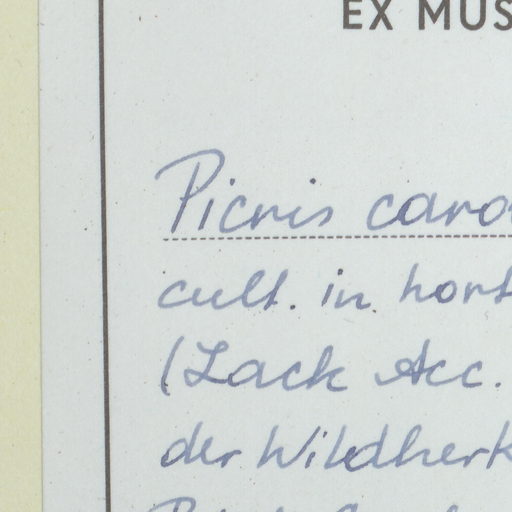 EX MUS
Picris caro
cult. in hort
(Lack Acc.
der Wildherk